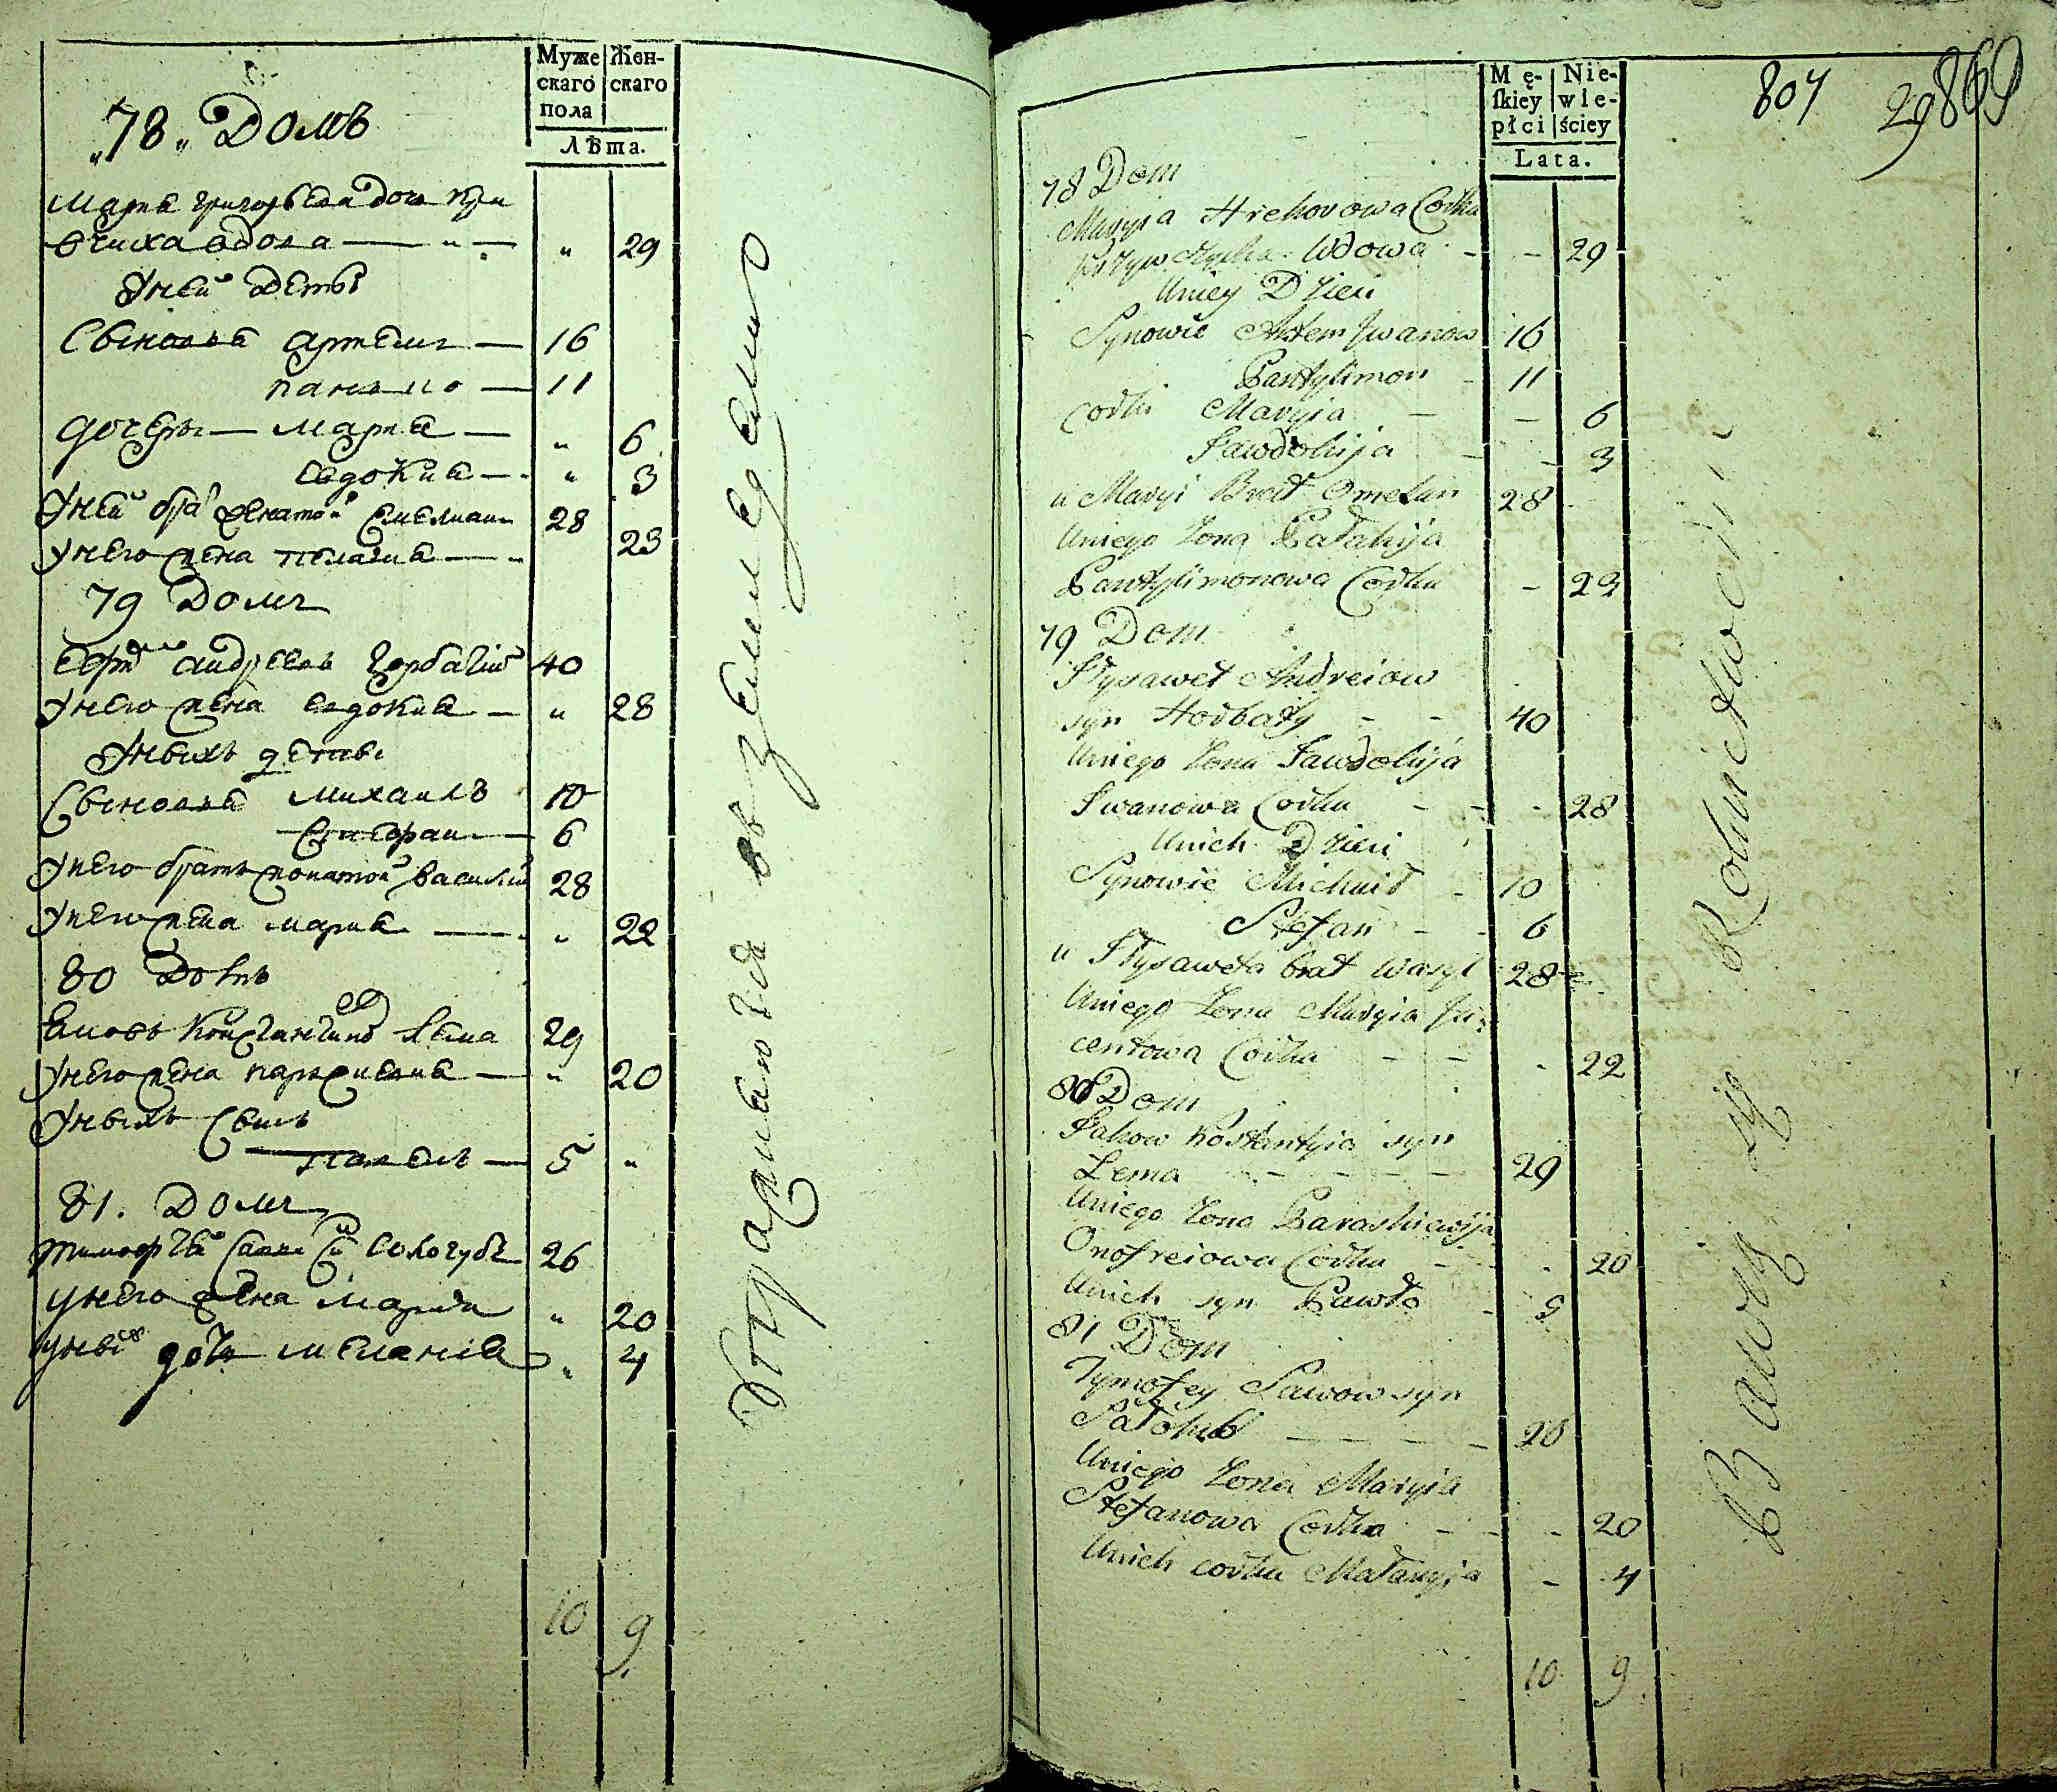 Муже
скаго
пола
Жен-
скаго
Лѣта.
„78„ Домъ
Мария григорьева дочь кри
вчиха вдова — „ 29
Унеи Дети
Сыновья артемъ — 16
панько — 11
дочеры — мария — „ 6
евдокия — „ 3
Унеи бра женатои емелианъ 28
Унего жена пелагия — 23
79 Домъ
андреевъ горбатии 40
Унего жена евдокия — „ 28
Унихъ дети
Сыновья михаилъ 10
Стефанъ 6
Унего братъ женатои василии 28
Унего жена мария — „ 22
80 Домъ
Яковъ Константиновъ Лема 29
Унего жена параскевия — „ 20
Унихъ Сынъ
Павелъ — 5 „
81. Домъ
тимофеи Савинъ Сологубъ 26
унего жена мария „ 20
унихъ дочь мелания „ 4
10 9
упражняются въ земледелии
Mę-
skiey
płci
Nie-
wie-
ściey
Lata.
804 29 869
78 Dom
Maryia Hrehorowa Corka
Krzywczycha Wdowa - - 29
Uniey Dzieci
Synowie Artem Jwanow 16
Pantylimon - 11
Corki Maryia - - 6
Jawdokija - - 3
u Maryi Brat Omelan 28
Uniego Zona Pałahija
Pantylimonowa Corka - 23
79 Dom
Jłysawet Andreiow
syn Horbaty - - 40
Uniego Zona Jawdokija
Jwanowa Corka - - - 28
Unich Dzieci
Synowie Michaił - 10
Stefan - - 6
u Jłysaweta brat Wasyl 28
Uniego Zona Maryia Jn-
centowa Corka - - - 22
80 Dom
Jakow Kostantyia syn
Lema - - - - - 29
Uniego Zona Paraskiewija
Onofreiowa Corka - - - 20
Unich syn Pawło - 5
81 Dom
Tymofey Sawow syn
Sałohub - - - - 26
Uniego Zona Maryia
Stefanowa Corka - - - 20
Unich corka Małanyia - 4
10 9
Bawią się Rolnictwem